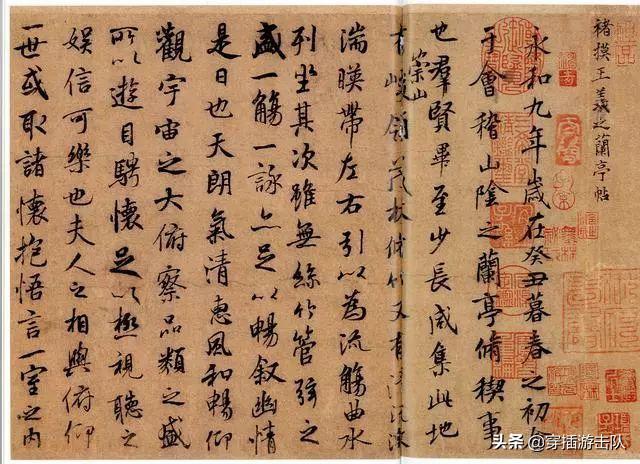 褚摸王羲之蘭亭帖
永和九年歲在癸丑暮春之初會
于會稽山陰之蘭亭脩稧事
也羣賢畢至少長咸集此地
有崇山峻領茂林脩竹又有清流激
湍暎帶左右引以為流觴曲水
列坐其次雖無絲竹管弦之
盛一觴一詠亦足以暢叙幽情
是日也天朗氣清惠風和暢仰
觀宇宙之大俯察品類之盛
所以遊目騁懷足以極視聽之
娛信可樂也夫人之相與俯仰
一世或取諸懷抱悟言一室之內
头条 @穿插游击队